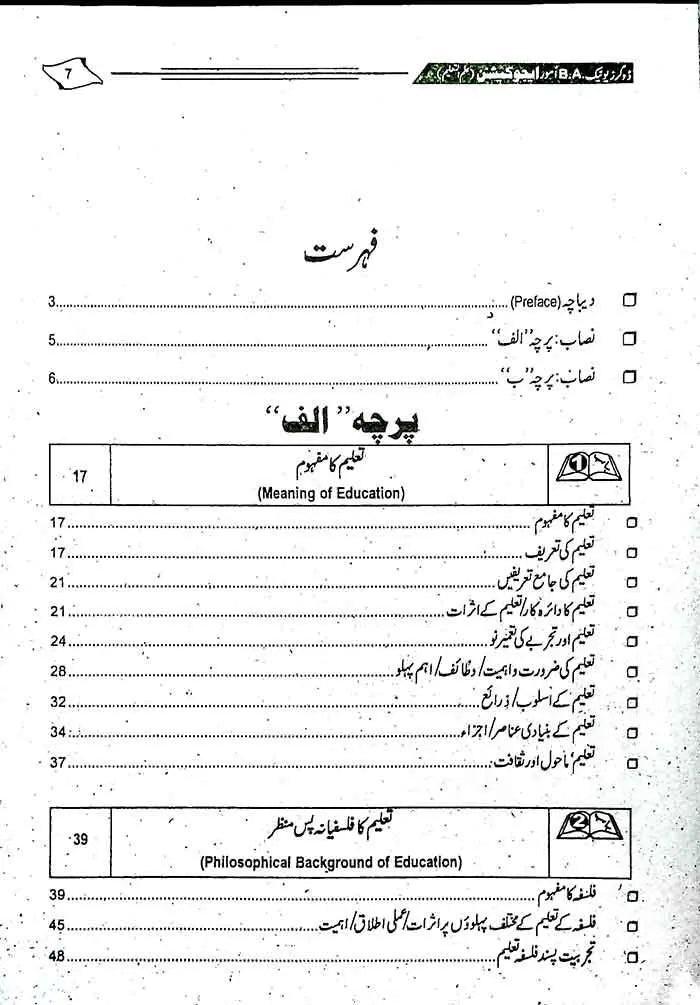 ڈوگرز یونیک .B.A آموز ایجوکیشن (علم التعلیم) 7
فہرست
دیباچہ (Preface) 3
نصاب: پرچہ ”الف“ 5
نصاب: پرچہ ”ب“ 6
پرچہ ”الف“
1 تعلیم کا مفہوم 17
(Meaning of Education)
تعلیم کا مفہوم 17
تعلیم کی تعریف 17
تعلیم کی جامع تعریفیں 21
تعلیم کا دائرہ کار/تعلیم کے اثرات 21
تعلیم اور تجربے کی تعمیر نو 24
تعلیم کی ضرورت و اہمیت/وظائف/اہم پہلو 28
تعلیم کے اسلوب/ذرائع 32
تعلیم کے بنیادی عناصر/اجزاء 34
تعلیم، ماحول اور ثقافت 37
2 تعلیم کا فلسفیانہ پس منظر 39
(Philosophical Background of Education)
فلسفہ کا مفہوم 39
فلسفہ کے تعلیم کے مختلف پہلوؤں پر اثرات/عملی اطلاق/اہمیت 45
تجربیت پسند فلسفہ تعلیم 48